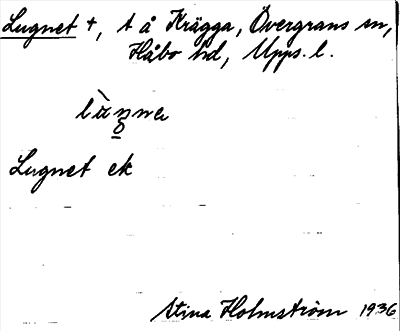 Lugnet +, t å Krägga, Övergrans sn,
Håbo hd, Upps. l.
Lugnet ek
Stina Holmström 1936